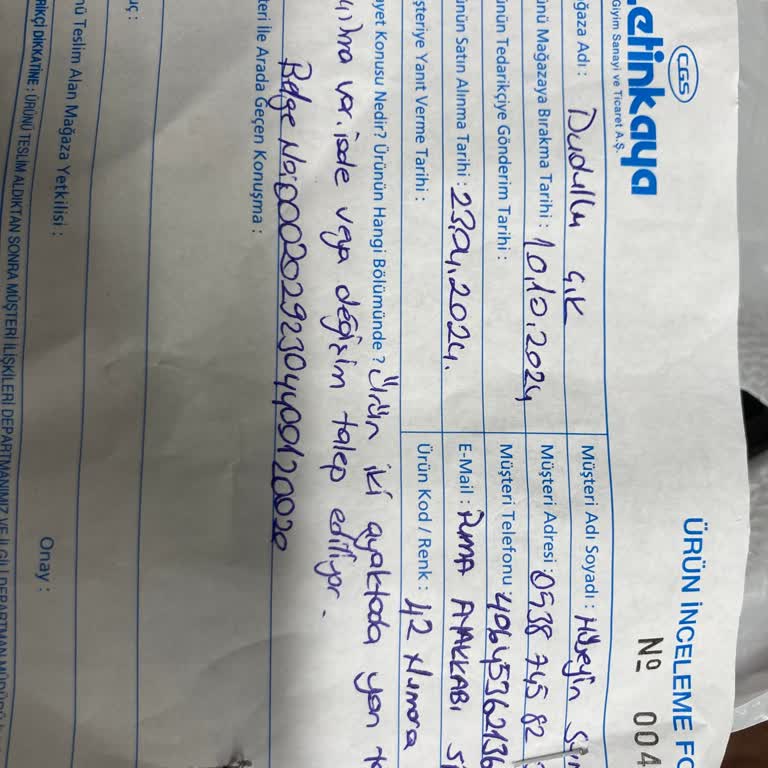 etinkaya
CGS
Giyim Sanayi ve Ticaret A.Ş.
ÜRÜN İNCELEME FO
№ 004
ğaza Adı : Dudullu ÇK
Müşteri Adı Soyadı : Hüseyin
ünü Mağazaya Bırakma Tarihi : 10.10.2024
Müşteri Adresi : 0538 745 82
ünün Tedarikçiye Gönderim Tarihi :
Müşteri Telefonu : 40645362136
ünün Satın Alınma Tarihi : 23.04.2024.
E-Mail : PUMA AYAKKABI
şteriye Yanıt Verme Tarihi :
Ürün Kod / Renk : 42 Numara
ayet Konusu Nedir? Ürünün Hangi Bölümünde ? Ürün iki ayaktada yan
var. iade veya değişim talep ediliyor.
Belge No:
teri İle Arada Geçen Konuşma :
uç :
nü Teslim Alan Mağaza Yetkilisi :
Onay :
RİKÇİ DİKKATİNE : ÜRÜNÜ TESLİM ALDIKTAN SONRA MÜŞTERİ İLİŞKİLERİ DEPARTMANIMIZ VE İLGİLİ DEPARTMAN MÜDÜRÜ